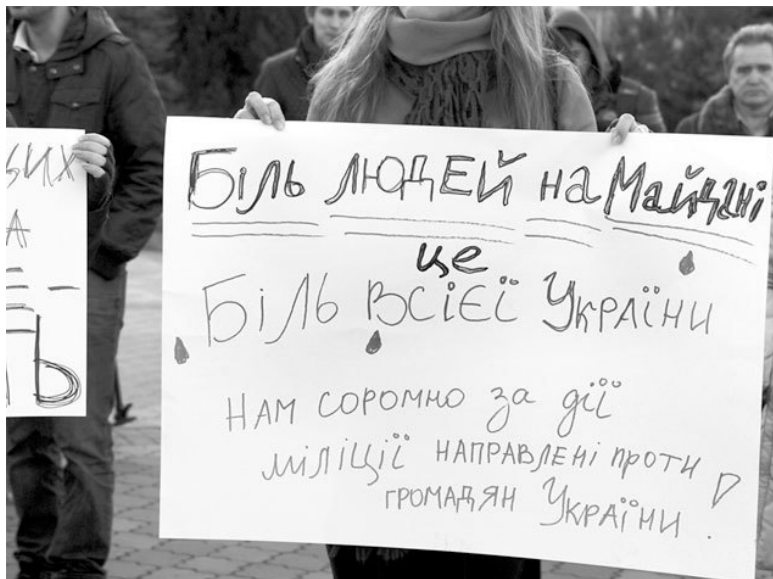 Біль людей на Майдані
це
Біль всієї України
Нам соромно за дії
міліції направлені проти
громадян України!